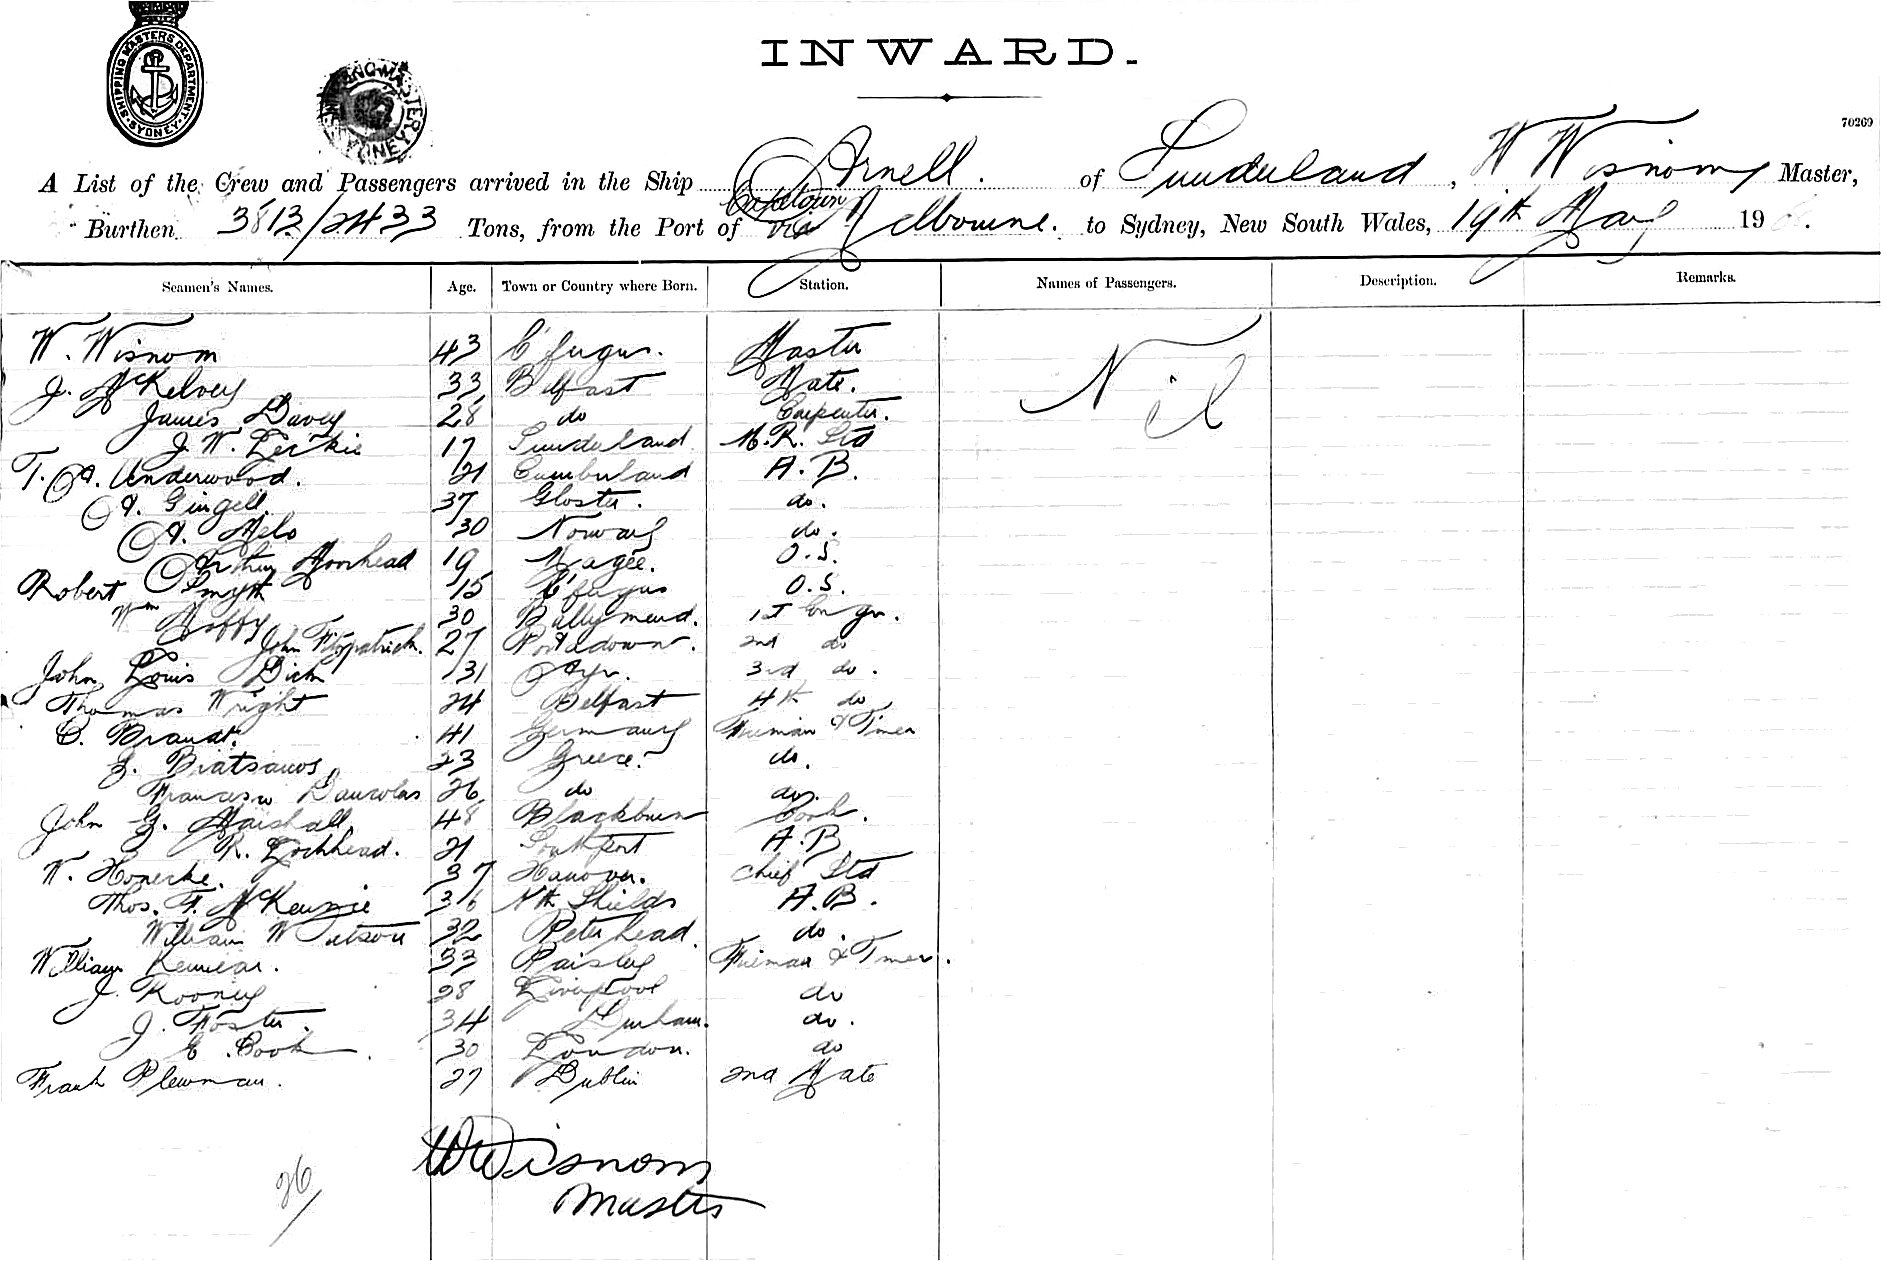 SHIPPING MASTERS DEPARTMENT
SYDNEY
INWARD.
70269
A List of the Crew and Passengers arrived in the Ship Arnell. of Sunderland, W Wisnom Master,
Capetown
Burthen 3813/2433 Tons, from the Port of via Melbourne. to Sydney, New South Wales, 19th May 19
Seamen's Names. Age. Town or Country where Born. Station. Names of Passengers. Description. Remarks.
W. Wisnom 43 C'fergus. Master Nil
J. McKelvey 33 Belfast Mate.
James Davey 28 do Carpenter.
J. W. Leckie 17 Sunderland M.R. Std
T. A. Underwood. 21 Cumberland A.B.
A. Gingell. 37 Gloster. do.
A. Melo 30 Norway do.
Arthur Moorhead 19 Magee. O.S.
Robert Smyth 15 C'fergus O.S.
Wm 30 1st Engr.
John Fitzpatrick. 27 Portadown. 2nd do
John Louis Dick 31 Ayr. 3rd do.
Thomas Wright 24 Belfast 4th do
C. Brandt. 41 Germany Fireman & Tmer
23 Greece. do.
Francesco 26 do do.
John G. Marshall 48 Blackburn Cook.
R. Lochhead. 21 Southport A.B.
W. 37 Hanover. Chief Std
Thos. F. McKenzie 36 Nth Shields A.B.
William Watson 32 Peterhead. do.
William 33 Paisley Fireman & Tmer.
J. Rooney 28 Liverpool do
J. Foster. 34 Durham. do.
E. Book 30 London. do
Frank Plewman. 27 Dublin 2nd Mate
W Wisnom
Master
26/